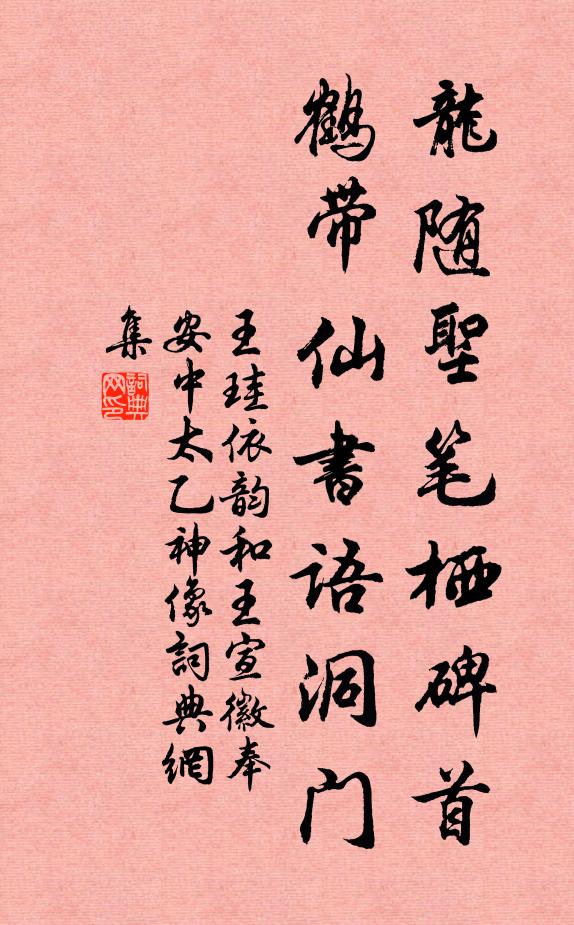 龍随聖笔栖碑首
鶴带仙書语洞门
王珪依韵和王宣徽奉
安中太乙神像詞典網
集
詞典网印